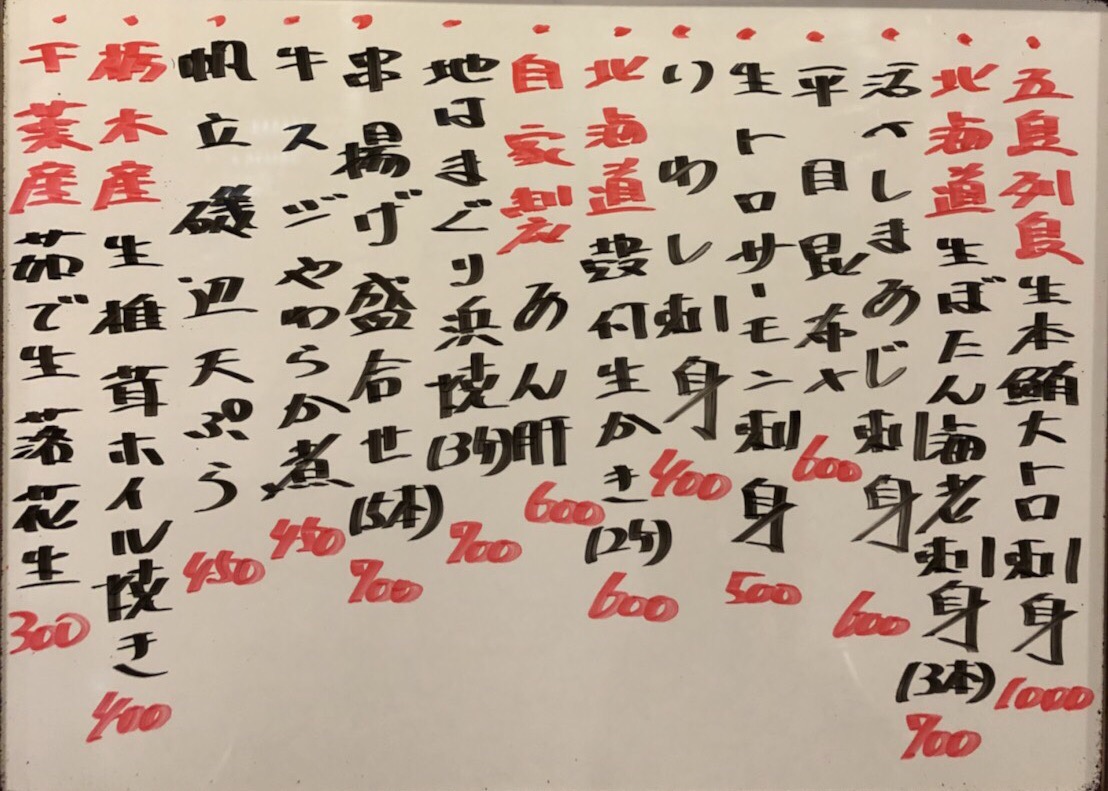 ・五島列島 生本鮪大トロ刺身 1000
・北海道 生ぼたん海老刺身 (3本) 700
・活〆しまあじ刺身 600
・平目昆布〆 600
・生トロサーモン刺身 500
・いわし刺身 400
・北海道 殻付生かき(2ケ) 600
・自家製 あん肝 600
・地はまぐり浜焼(3ケ) 700
・串揚げ盛合せ (5本) 700
・牛スジやわらか煮 450
・帆立磯辺天ぷら 450
・栃木産 生椎茸ホイル焼き 400
・千葉産 茹で生落花生 300